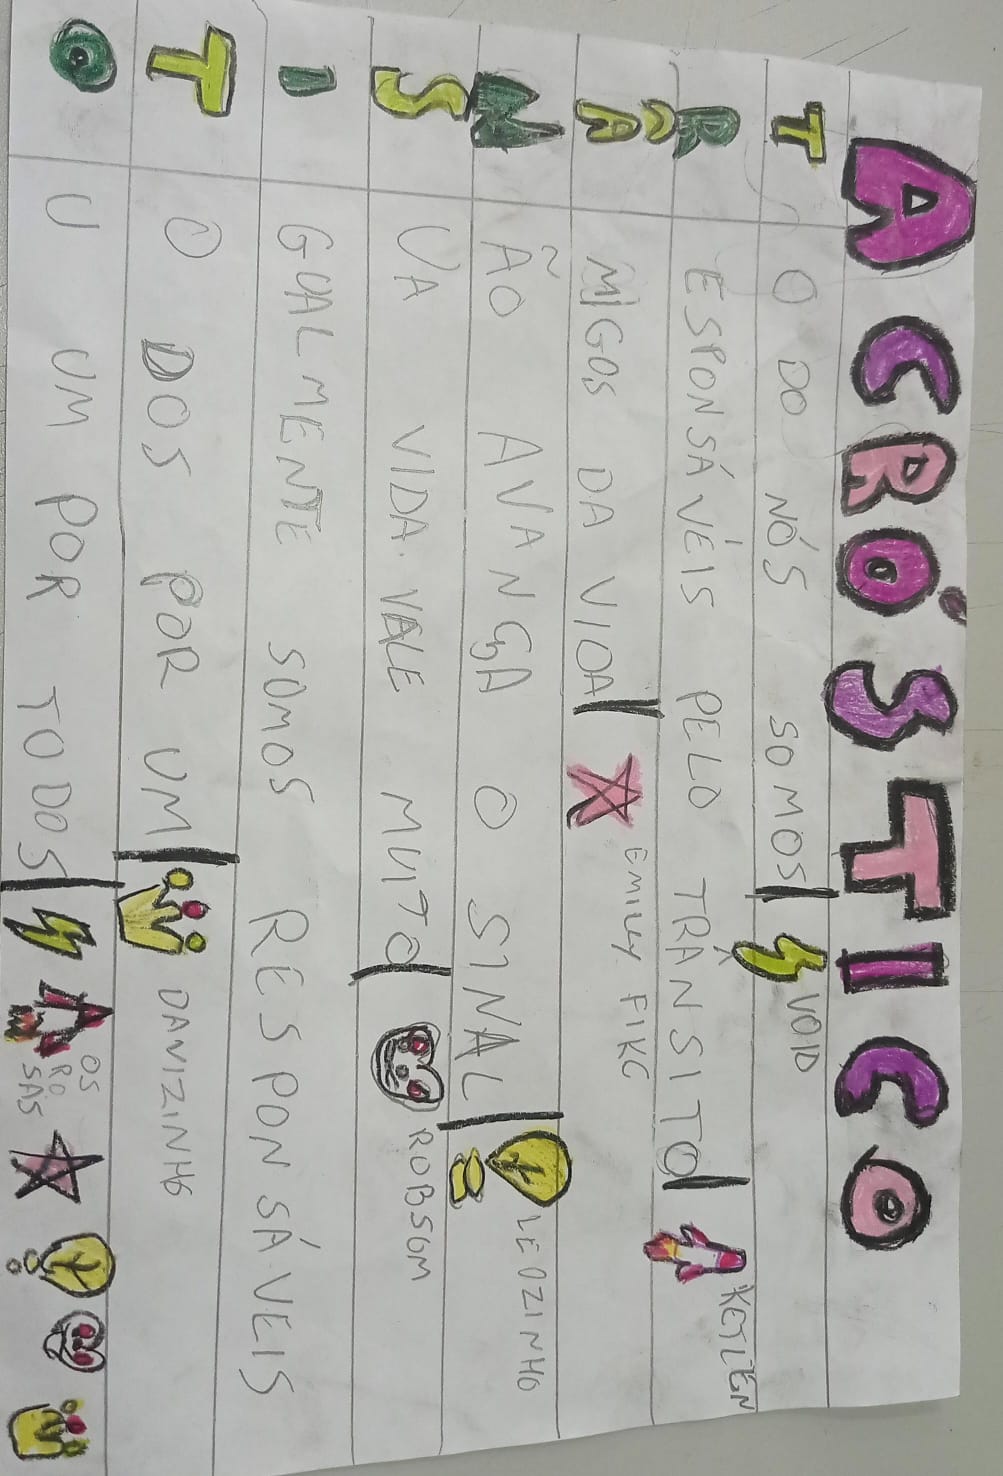 ACRÓSTICO
T O DO NÓS SOMOS VOID
R ESPONSÁVÉIS PELO TRÂNSITO KETLÉN
A MIGOS DA VIDA EMILLY FIKC
N ÃO AVANÇA O SINAL LEOZINHO
S UA VIDA VALE MUITO ROBSOM
I GUALMENTE SOMOS RESPONSÁVEIS
T O DOS POR UM DAVIZINHO
O U UM POR TODOS OS ROSAS